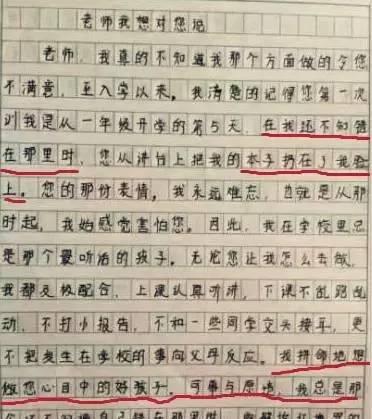 老师我想对您说
老师，我真的不知道我那个方面做的令您
不满意，至入学以来。我清楚的记得您第一次
训我是从一年级开学的第5天，在我还不知错
在那里时，您从讲台上把我的本子扔在了我脸
上。您的那份表情。我永远难忘，也就是从那
时起，我始感觉害怕您。因此，我在学校里总
是那个最听话的孩子。无论您让我怎么去做，
我都及极配合，上课认真听讲，下课不乱跑乱
动，不打小报告，不和一些同学交头接耳，更
不把发生在学校的事向父母反应。我拼命地想
做您心目中的好孩子。可事与愿违，我总是那